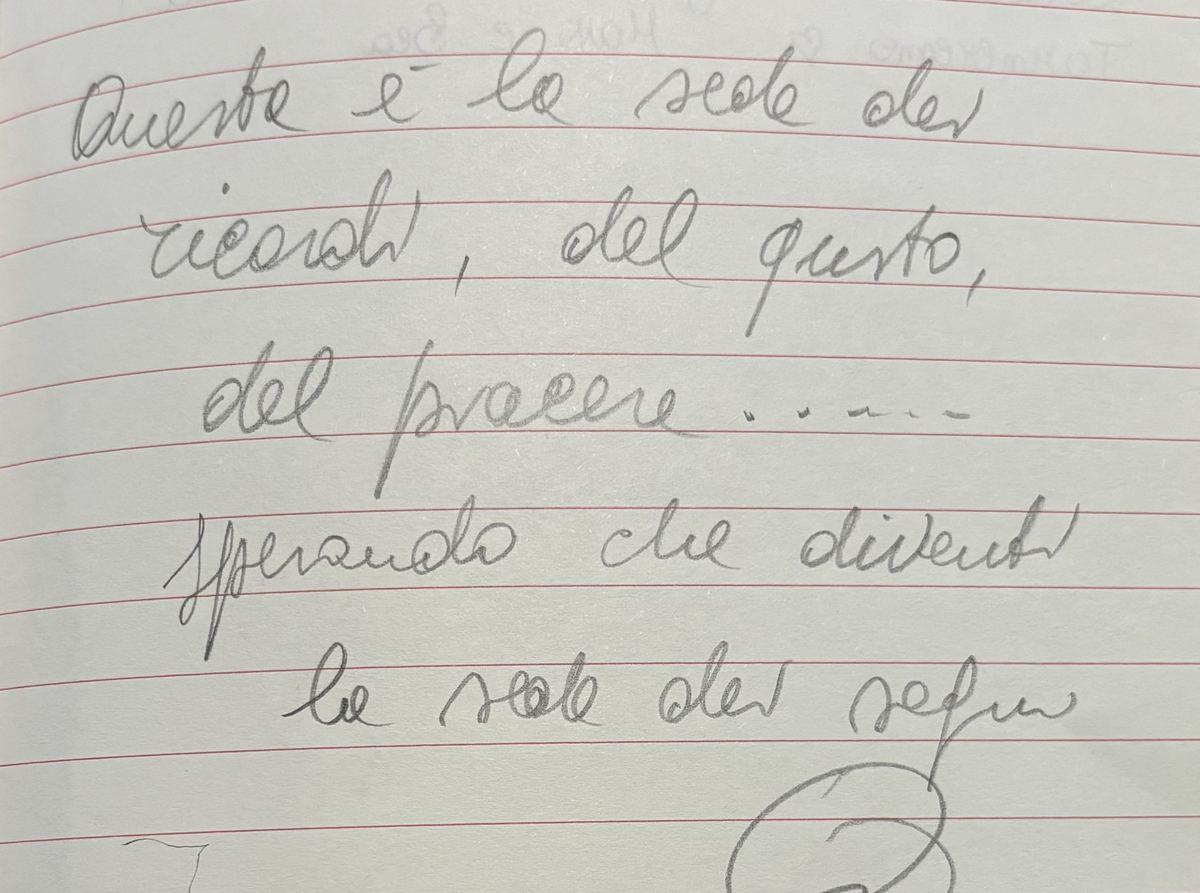 Questa è la sede dei
ricordi, del gusto,
del piacere ......
sperando che diventi
la sede dei segni